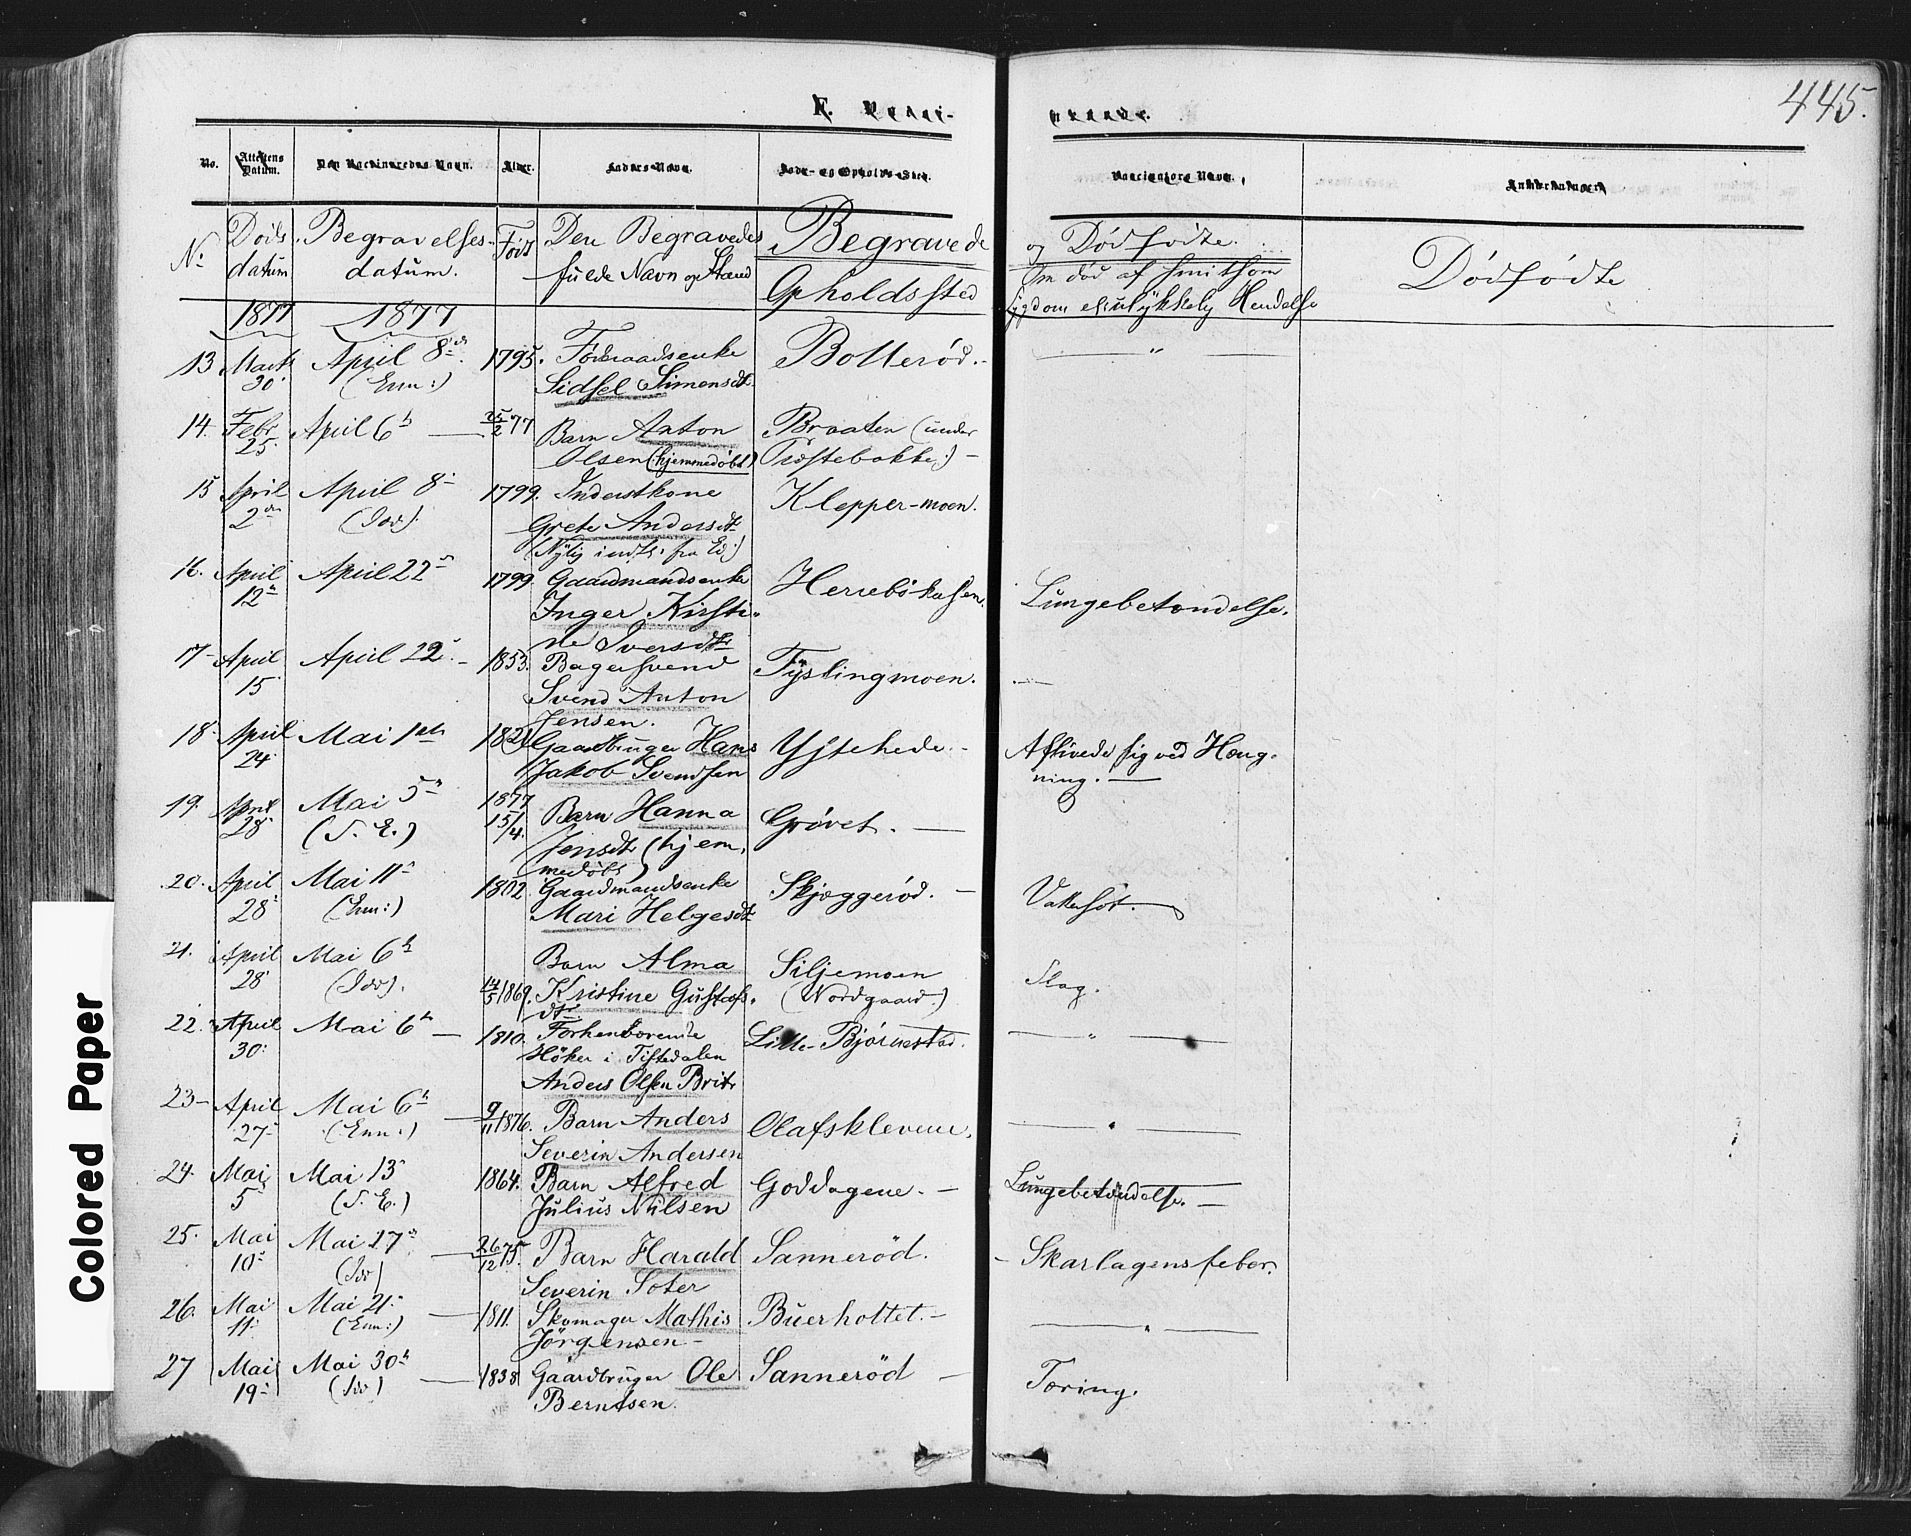 445.
No.
Attestens Datum.
Den Vaccineredes Navn.
Alder.
Faders Navn.
Føde- og Opholds-Sted.
Vaccinators Navn.
Anmærkninger
No
Døds datum
Begravelses datum.
Født
Den Begravedes fulde Navn og Stand
Begravede
Opholdssted
og Dødfødte.
Om død af smitsom
Sygdom el. ulykkelig Hendelse
Dødfødte
1877 1877
13 Marts 30. April 8de (Enn:) 1795. Føderaadsenke Bollerød.-
Sidsel Simensdt.
14. Febr. 25. April 6te 25/2 77 Barn Anton Braaten (under
Olsen (hjemmedøbt) Træstebakke:)-
15 April 2den April 8de (Idd). 1799. Inderstkone Klepper-moen.
Grete Andersdt.
(Nylig indfl. fra Ed:)
16. April 12te April 22de 1799. Gaardmandsenke Herrebøkasen. Lungebetændelse.
Inger Kirsti-
ne Iversdtr
17- April 15 April 22. 1853. Bagersvend Tyslingmoen.
Svend Anton
Jensen.
18. April 24 Mai 1ste 1821 Gaardbruger Hans Ystehede.- Aflivede sig ved Hæng-
Jakob Svendsen ning.
19. April 28 Mai 5te (S. E.) 1877 15/4. Barn Hanna Grøvet.
Jensdtr (hjem-
medøbt)
20. April 28. Mai 11te (Enn:) 1802. Gaardmandsenke Skjæggerød. Vattersot.
Mari Helgesdt
21. April 28 Mai 6te (Idd). 14/5 1869. Barn Alma Siljemoen Slag.
Kristine Gustafs- (Nordgaard.)
dtr
22. April 30. Mai 6te 1810. Forhenværende Lille-Bjørnestad.
Høker i Tistedalen
Anders Olsen Brite
23- April 27. Mai 6te (Enn:) 9/11 1876. Barn Anders Olafsklevene.
Severin Andersen
24. Mai 5 Mai 13 (S. E.) 1864. Barn Alfred Goddagene.- Lungebetændelse.
Julius Nilsen
25. Mai 10. Mai 27 (Idd) 26/12 75. Barn Harald Sannerød. Skarlagensfeber.
Severin Soter
26. Mai 11. Mai 21. (Enn:) 1811. Skomager Mathis Buerholtet.-
Jørgensen
27 Mai 19. Mai 30te (Idd) 1838 Gaardbruger Ole Sannerød Tæring.
Berntsen.
Colored Paper